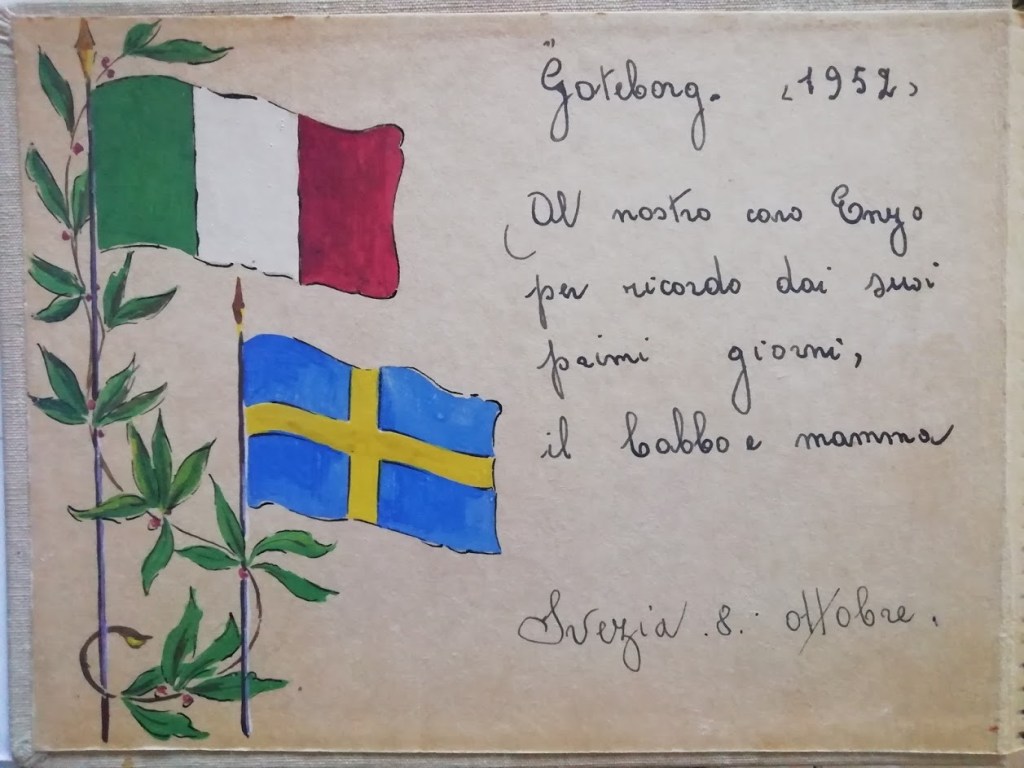 Göteborg. (1952)
Al nostro caro Enzo
per ricordo dai suoi
primi giorni,
il babbo e mamma
Svezia . 8. ottobre.